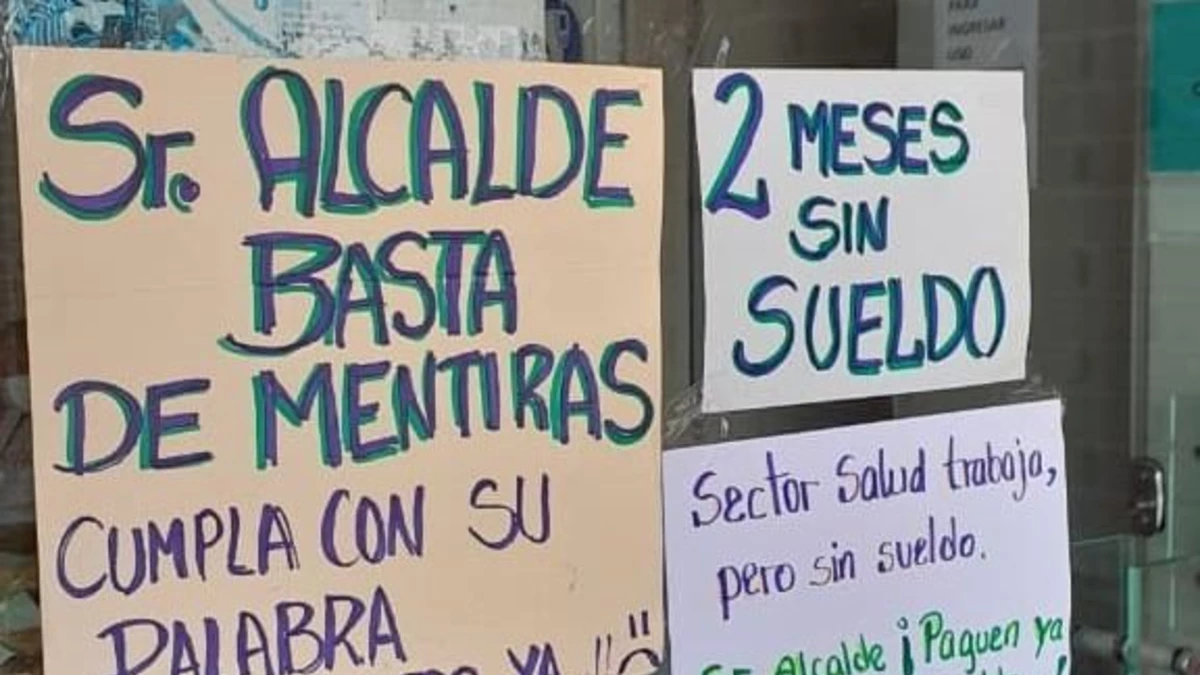 Sr. ALCALDE
BASTA
DE MENTIRAS
CUMPLA CON SU
PALABRA
YA
2 MESES
SIN
SUELDO
Sector Salud trabaja,
pero sin sueldo.
Alcalde ¡Paguen ya
PARA
INGRESAR
USO